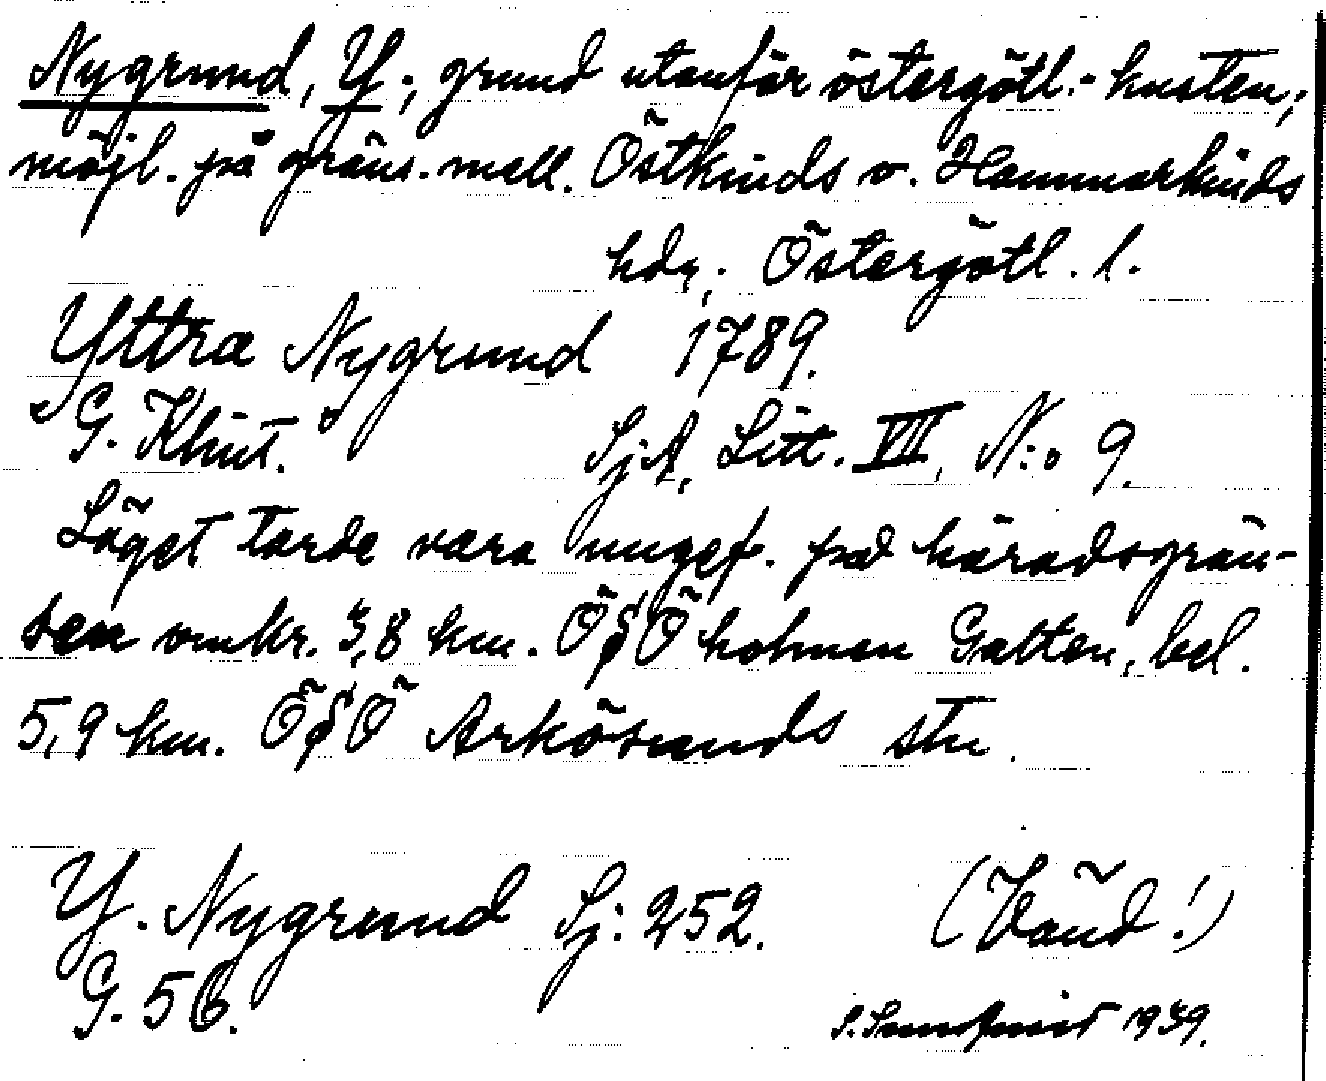 Nygrund, Y.; grund utanför östergötl.-kusten;
möjl. på gräns. mell. Östkinds o. Hammarkinds
hdr; Östergötl. l.
Yttra Nygrund 1789.
"G. Klint." SjA, Litt. VII, N:o 9.
Läget torde vara ungef. på häradsgrän-
sen omkr. 3,8 km. ÖSÖ holmen Gatten, bel.
5,9 km. ÖSÖ Arkösunds stn.
Y. Nygrund Sj: 252. (Vänd!)
G. 56.
1939.